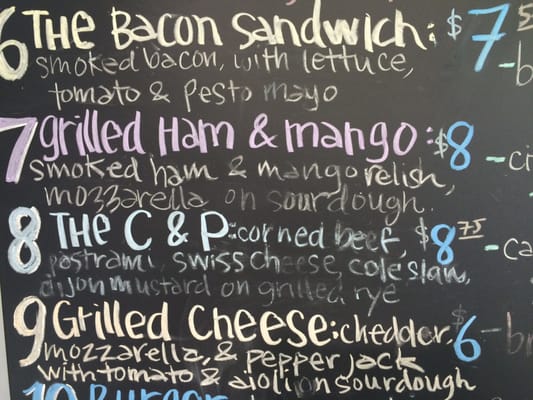 6 THE Bacon Sandwich: $7 5
smoked bacon, with lettuce,
tomato & pesto mayo
7 grilled Ham & mango: $8
smoked ham & mango relish, - ci
mozzarella on sourdough.
8 THE C & P: corned beef, $8 75
pastrami, swiss cheese, coleslaw, - ca
dijon mustard on grilled rye
9 Grilled Cheese: chedder, $6 - br
mozzarella, & pepper jack
with tomato & aioli on sourdough
10 Burger